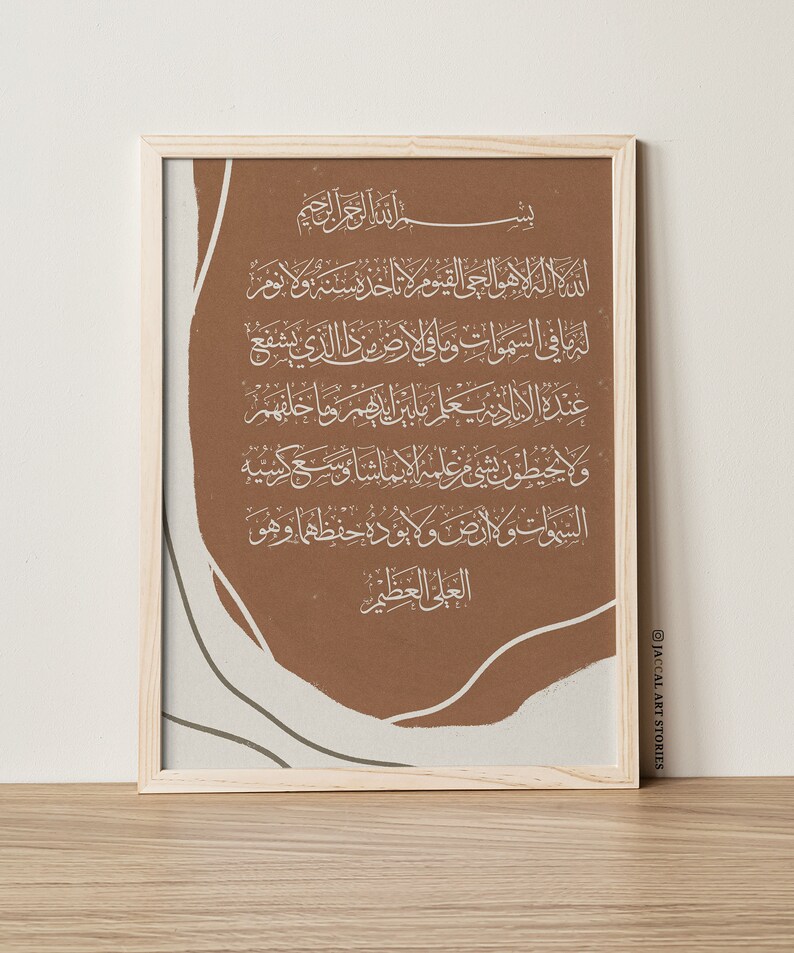 بسم الله الرحمن الرحيم
الله لا اله الا هو الحي القيوم لا تأخذه سنة ولا نوم
له ما في السموات وما في الأرض من ذا الذي يشفع
عنده إلا بإذنه يعلم ما بين أيديهم وما خلفهم
ولا يحيطون بشيء من علمه إلا بما شاء وسع كرسيه
السموات والأرض ولا يؤده حفظهما وهو
العلي العظيم
JACCAL ART STORIES